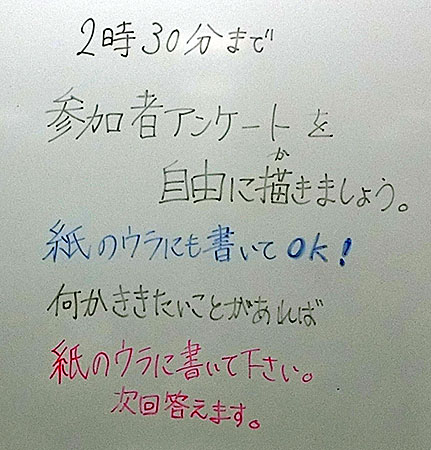 2時30分まで
参加者アンケートを
か
自由に描きましょう。
紙のウラにも書いてOK!
何かききたいことがあれば
紙のウラに書いて下さい。
次回答えます。